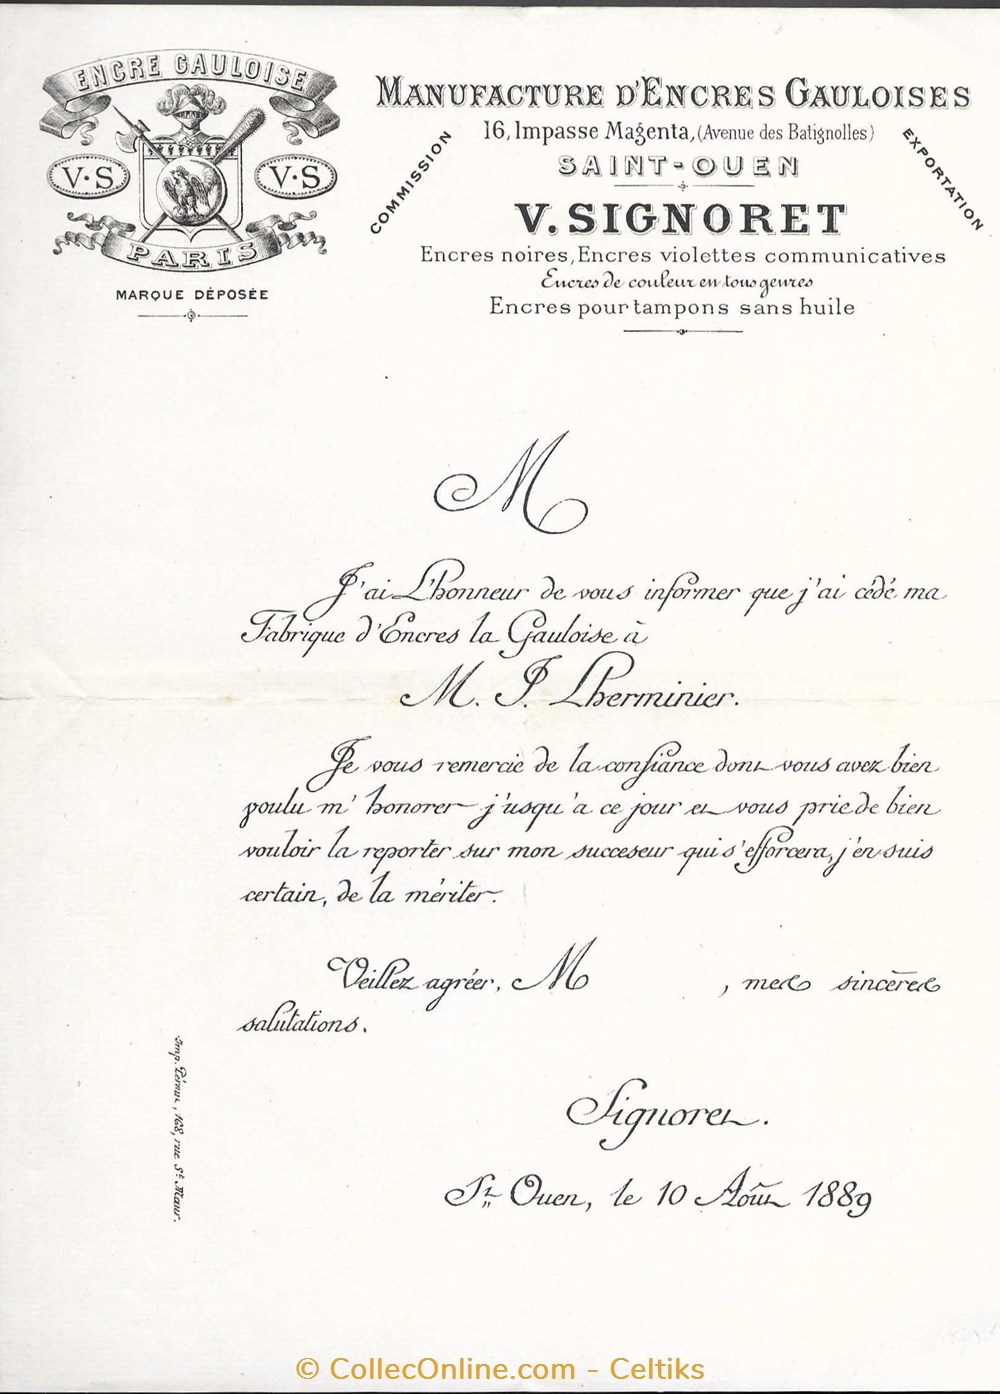 ENCRE GAULOISE
V·S
V·S
PARIS
MARQUE DÉPOSÉE
MANUFACTURE D'ENCRES GAULOISES
16, Impasse Magenta, (Avenue des Batignolles)
SAINT-OUEN
COMMISSION
EXPORTATION
V. SIGNORET
Encres noires, Encres violettes communicatives
Encres de couleur en tous genres
Encres pour tampons sans huile
M
J'ai L'honneur de vous informer que j'ai cédé ma
Fabrique d'Encres la Gauloise à
M. J. Lherminier.
Je vous remercie de la confiance dont vous avez bien
voulu m'honorer j'usqu'a ce jour et vous prie de bien
vouloir la reporter sur mon succeseur qui s'efforcera, j'en suis
certain, de la mériter.
Veillez agréer, M , mes sincères
salutations.
Signoret.
St Ouen, le 10 Août 1889
Imp. , 168, rue St Maur.
© CollecOnline.com - Celtiks